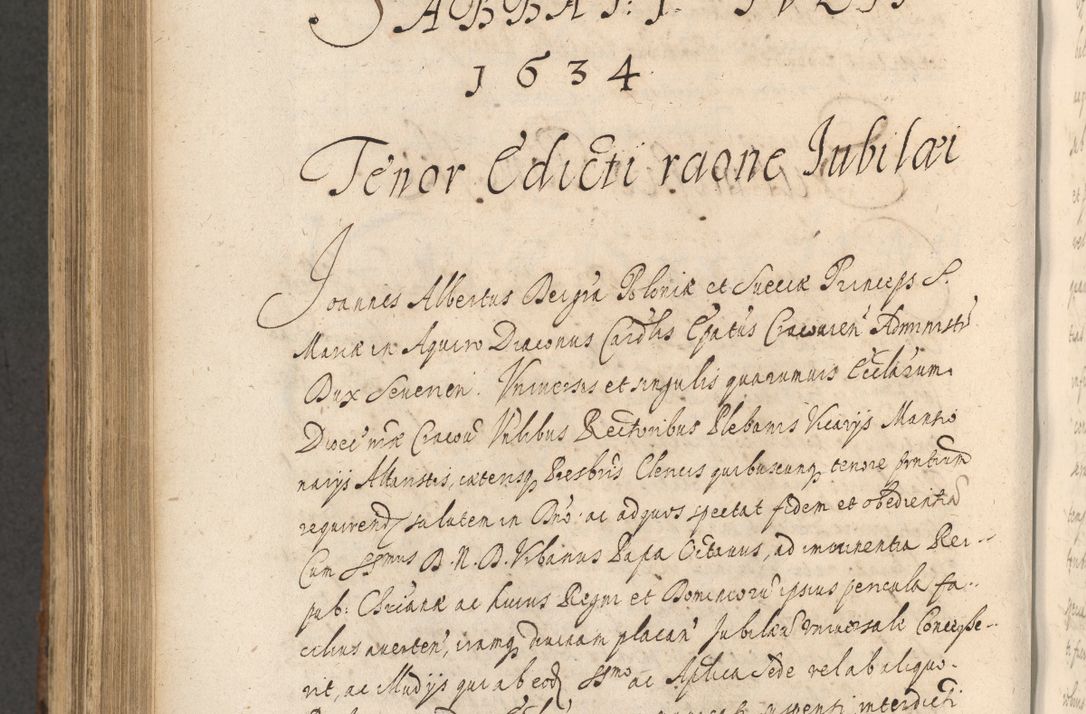 SABBAT: I. IVLII
1634
Tenor Edicti raone Jubilæi
Joannes Albertus Dei gra Poloniæ et Sueciæ Princeps S.
Mariæ in Aquiro Diaconus Cardlis Epatus Cracouien Administr
Dux Seuerien. Vniuersis et singulis quarumuis Ecclarum
Dioec nræ Cracou Vnlibus Rectoribus Plebanis Vicarijs Mansio
narijs Altaristis, cæterisq Presbris Clericis quibuscunq tenore pntium
requirend salutem in Dno ac ad quos spectat fidem et obedientia
Cum SSmus D. N. D. Vrbanus Papa Octauus, ad imminentia Rei--
pub: Chrianæ ac huius Regni et Dominioru ipsius pericula fa--
cilius auerten, iramq diuinam placan Jubilæu Vniuersale Concesse--
rit, ac Mudijs qui ab eod SSmo ac Aplica Sede vel ab aliquo-
interdicti